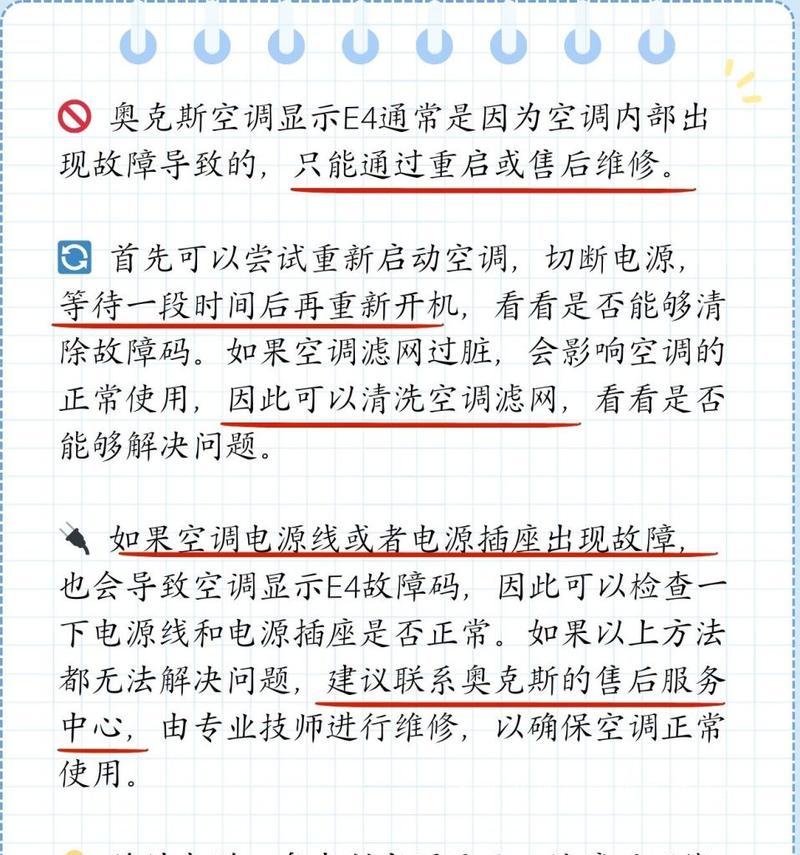 奥克斯空调显示E4通常是因为空调内部出
现故障导致的，只能通过重启或售后维修。
首先可以尝试重新启动空调，切断电源，
等待一段时间后再重新开机，看看是否能够清
除故障码。如果空调滤网过脏，会影响空调的
正常使用，因此可以清洗空调滤网，看看是否
能够解决问题。
如果空调电源线或者电源插座出现故障，
也会导致空调显示E4故障码，因此可以检查一
下电源线和电源插座是否正常。如果以上方法
都无法解决问题，建议联系奥克斯的售后服务
中心，由专业技师进行维修，以确保空调正常
使用。